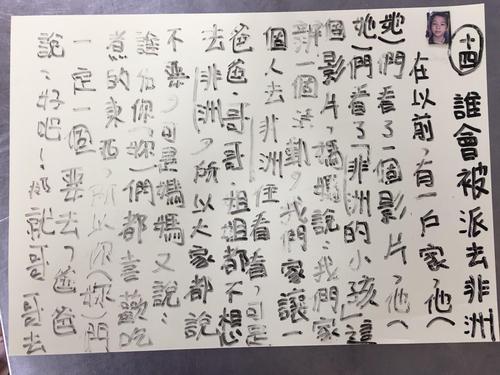 十四 誰會被派去非洲
在以前,有一戶家,他(
她)們看了一個影片,他(
她)們看了「非洲的小孩」這
個影片,媽媽說:我們家
辦一個活動,我們家讓一
個人去非洲住看看,可是
爸爸、哥哥、姐姐都不想
去「非洲」,所以大家都說
不要,可是媽媽又說:
誰你(妳)們都喜歡吃
煮的東西,所以你(妳)們
一定一個要去,爸爸
說:好吧!那就哥哥去